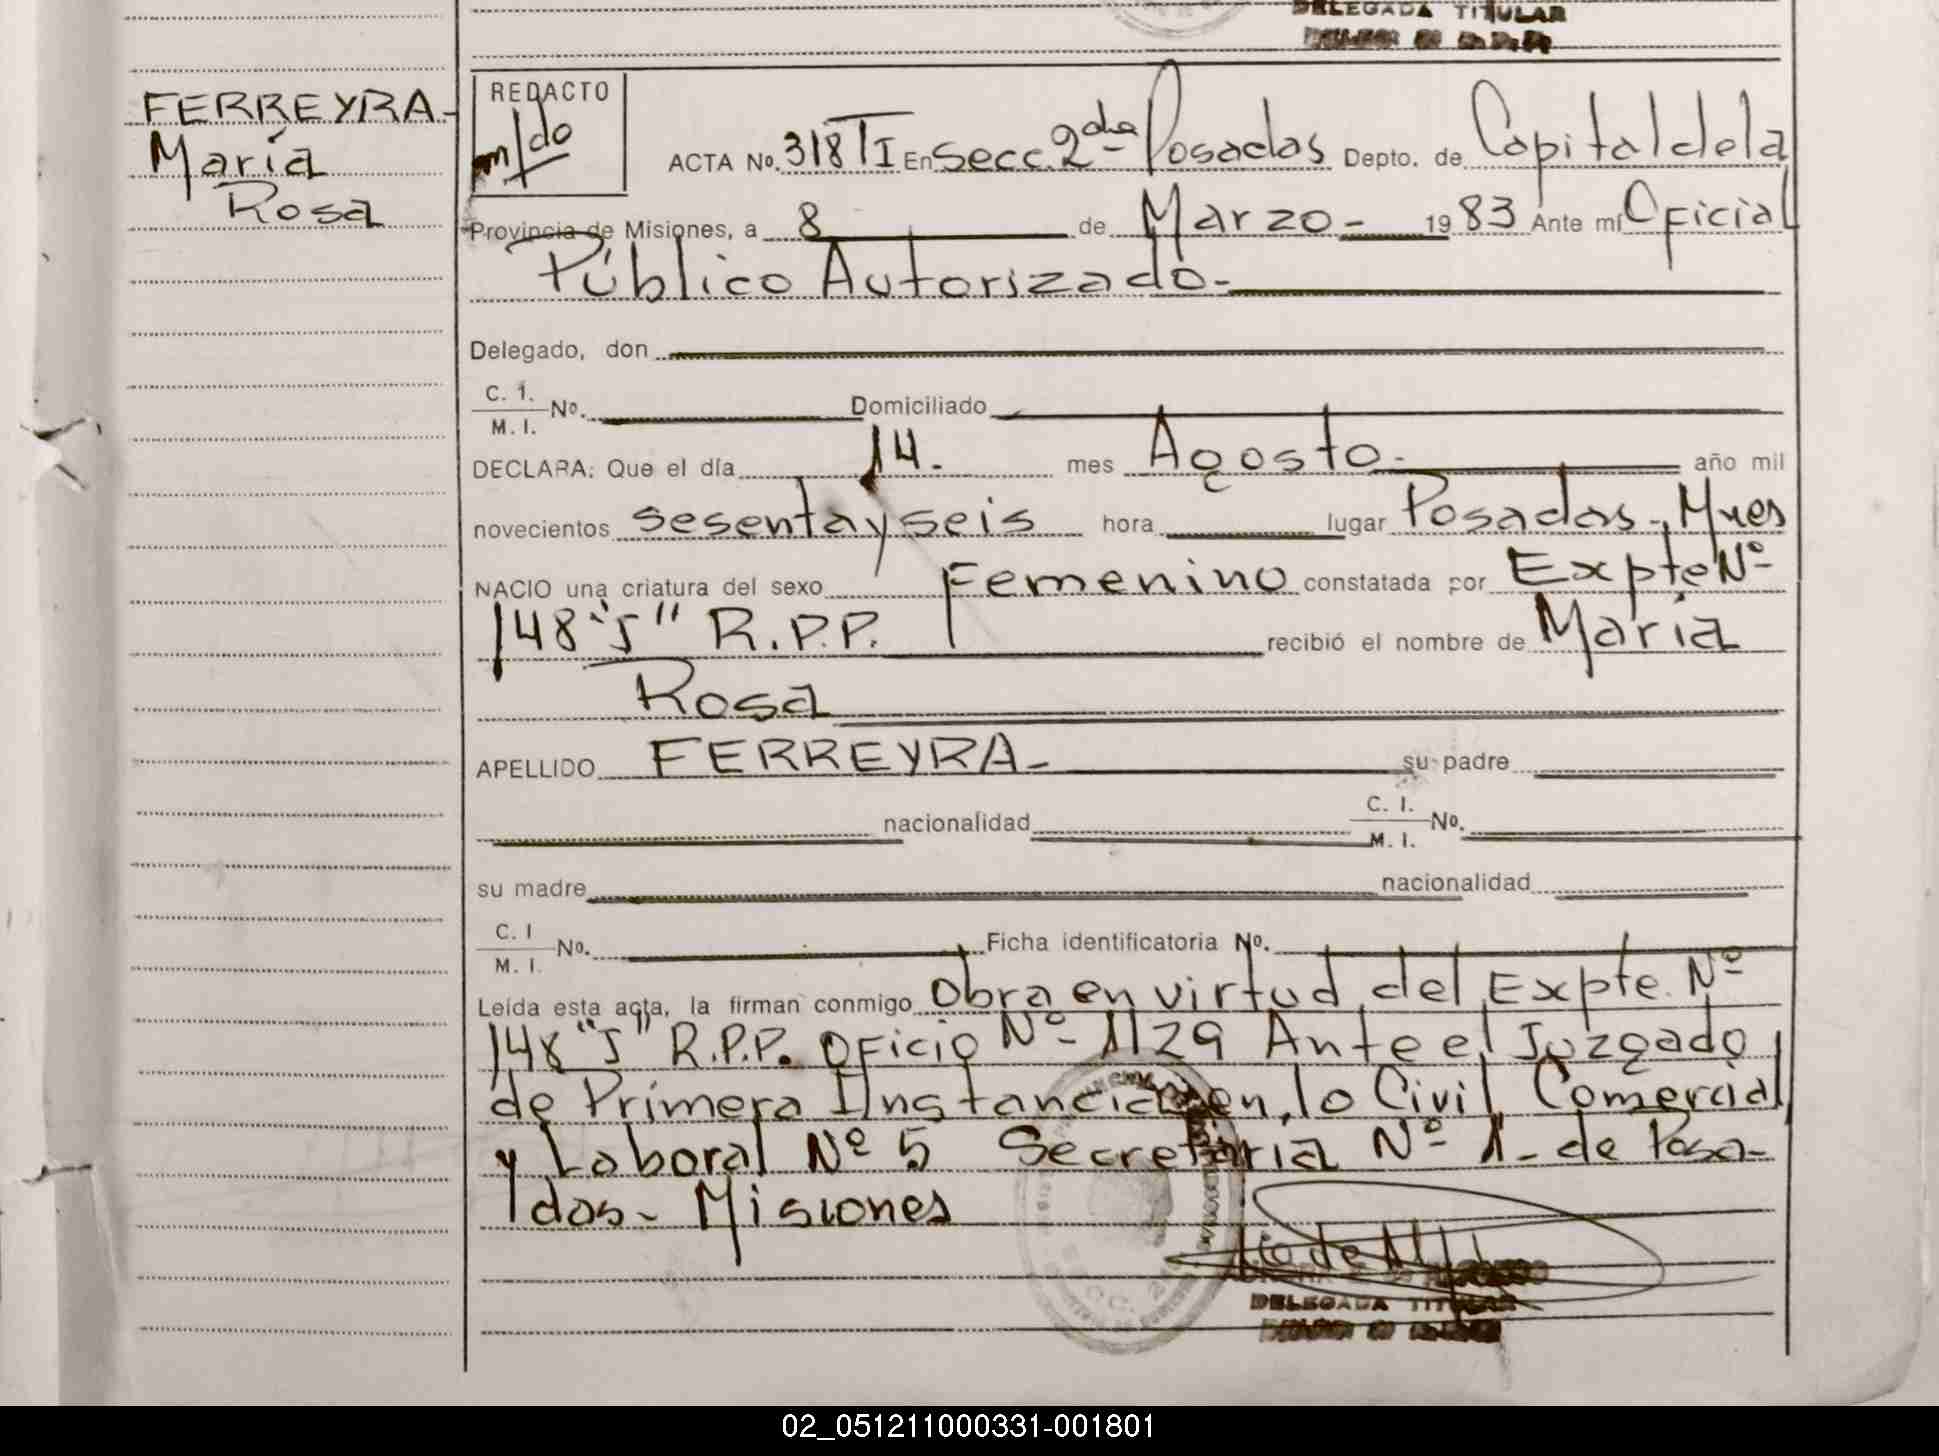 DELEGADA TITULAR
FERREYRA-
María
Rosa
REDACTO
ACTA No. 318 TI En Secc. 2da Posadas Depto. de Capital de la
Provincia de Misiones, a 8 de Marzo- 1983 Ante mí Oficial
Público Autorizado-
Delegado, don
C. I.
M. I. No. Domiciliado
DECLARA: Que el día 14. mes Agosto- año mil
novecientos sesenta y seis hora lugar Posadas-, Mnes
NACIO una criatura del sexo Femenino constatada por Expte Nº
148 "J" R.P.P. recibió el nombre de María
Rosa
APELLIDO FERREYRA- su padre
nacionalidad C. I.
M. I. No.
su madre nacionalidad
C. I
M. I. No. Ficha identificatoria No.
Leída esta acta, la firman conmigo Obra en virtud del Expte. Nº
148 "J" R.P.P. Oficio Nº- 1129 Ante el Juzgado
de Primera Instancia en lo Civil Comercial
y Laboral Nº 5 Secretaría Nº 1- de Posa-
das- Misiones
SECC. 2
DELEGADA TITULAR
02_051211000331-001801